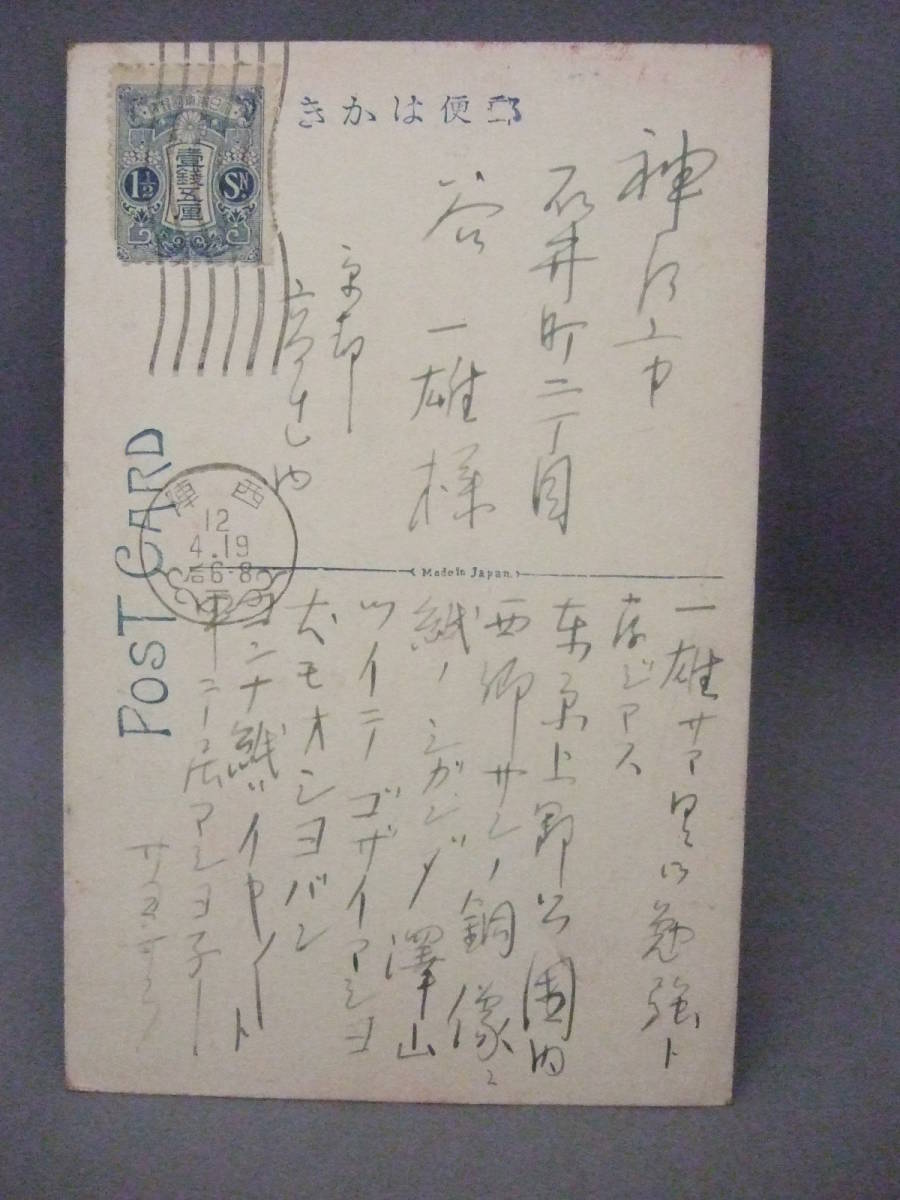 郵便はかき
大日本帝國郵便
壹錢五厘
1½ SN.
神戸市
石井町二丁目
谷 一雄様
京都
POST CARD
西陣
12
4.19
后6-8
Made in Japan.
一雄サマ 勉強ト
存ジマス
東京上野公園内
西郷サンノ銅像ニ
紙ノ 澤山
ツイテゴザイマショ
犬モオショバン
コンナ紙ガイヤノート
申シテ居マショ子ー